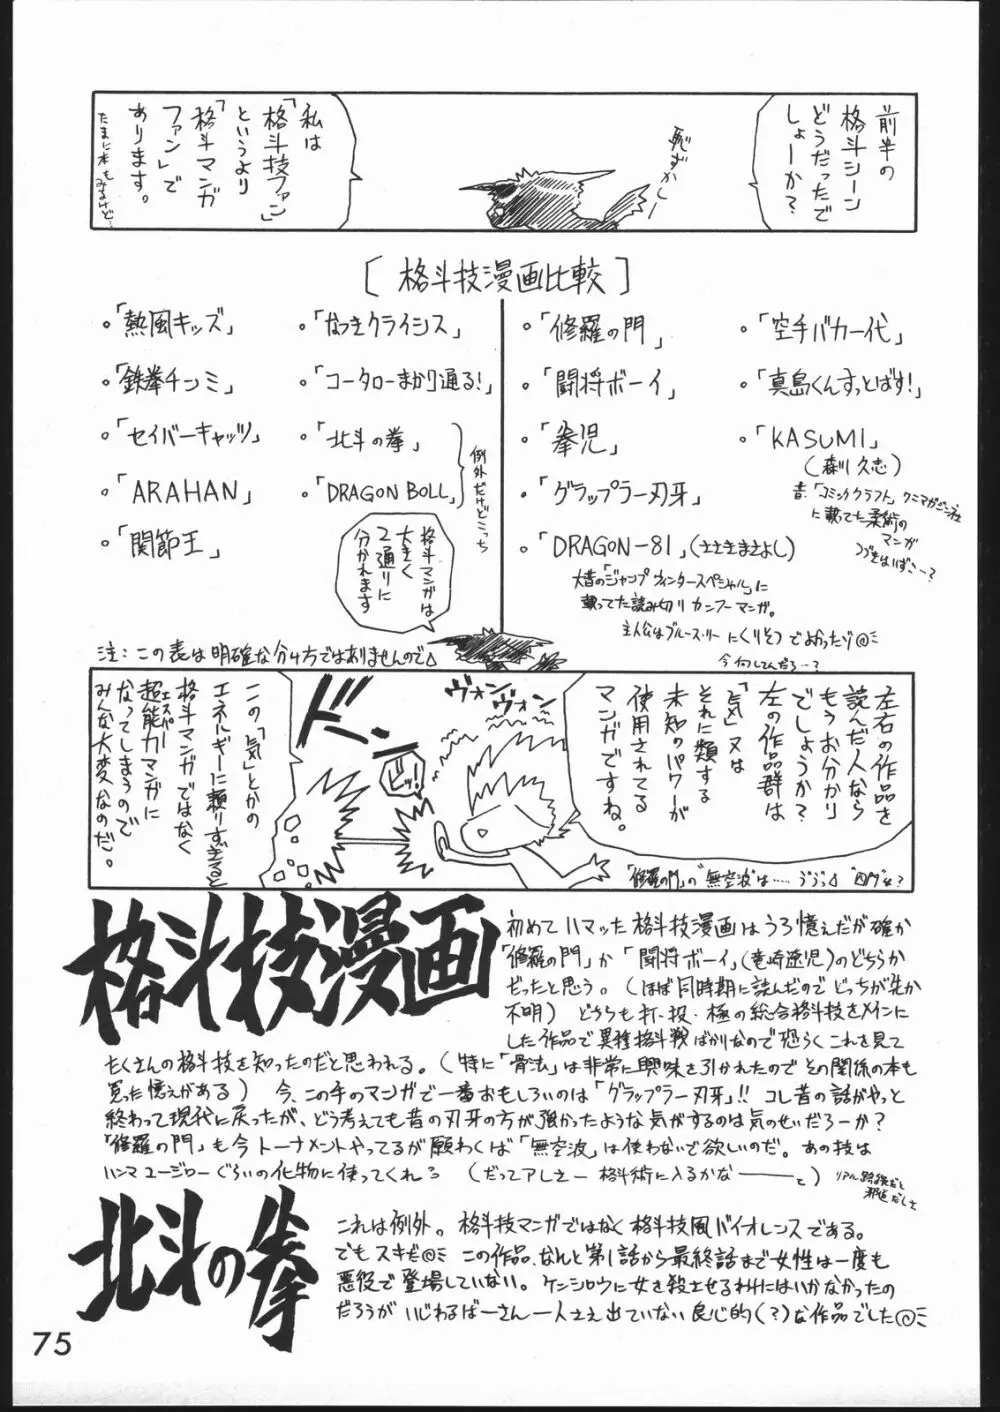 前半の
格斗シーン
どうだったで
しょーか？
恥ずかしー
私は
「格斗技ファン」
というより
「格斗マンガ
ファン」で
あります。
たまに本もみるけど…
[格斗技漫画比較]
。「熱風キッズ」
。「鉄拳チンミ」
。「セイバーキャッツ」
。「ARAHAN」
。「関節王」
。「なつきクライシス」
。「コータローまかり通る!」
。「北斗の拳」
。「DRAGON BOLL」
例外だけどこっち
格斗マンガは
大きく
2通りに
分かれます
。「修羅の門」
。「闘将ボーイ」
。「拳児」
。「グラップラー刃牙」
。「DRAGON-81」(ささきまさよし)
大昔の「ジャンプウィンタースペシャル」に
載ってた読み切りカンフーマンガ。
主人公はブルース・リーにくりそつでよかったゾ
今何してんだろ…？
。「空手バカ一代」
。「真島くんすっとばす!」
。「KASUMI」
(森川久志)
昔、「コミッククラフト」
に載ってた柔術の
マンガ
注：この表は明確な分け方ではありませんので
左右の作品を
読んだ人なら
もうお分かり
でしょうか？
左の作品群は
「気」又は
それに類する
未知のパワーが
使用されてる
マンガですね。
「修羅の門」の"無空波"は……
ヴォン
ヴォン
ドン
この「気」とかの
エネルギーに頼りすぎると
格斗マンガではなく
超能力マンガに
エスパー
なってしまうので
みんな大変なのだ。
格斗技漫画
初めてハマった格斗技漫画はうろ憶えだが確か
「修羅の門」か「闘将ボーイ」(竜崎遼児)のどちらか
だったと思う。(ほぼ同時期に読んだのでどっちが先か
不明) どちらも打・投・極の総合格斗技をメインに
した作品で異種格斗戦ばかりなので恐らくこれを見て
たくさんの格斗技を知ったのだと思われる。(特に「骨法」は非常に興味を引かれたのでその関係の本も
買った憶えがある) 今、この手のマンガで一番おもしろいのは「グラップラー刃牙」!! コレ昔の話がやっと
終わって現代に戻ったが、どう考えても昔の刃牙の方が強かったような気がするのは気のせいだろーか？
「修羅の門」も今トーナメントやってるが願わくば「無空波」は使わないで欲しいのだ。あの技は
ハンマユージローぐらいの化物に使ってくれ (だってアレさー格斗術に入るかなーと)
リアル路線だと
邪道だしさ
北斗の拳
これは例外。格斗技マンガではなく格斗技風バイオレンスである。
でもスキだ この作品、なんと第1話から最終話まで女性は一度も
悪役で登場していない。ケンシロウに女を殺させるわけにはいかなかったの
だろうがいじわるばーさん一人さえ出ていない良心的(？)な作品でした
75